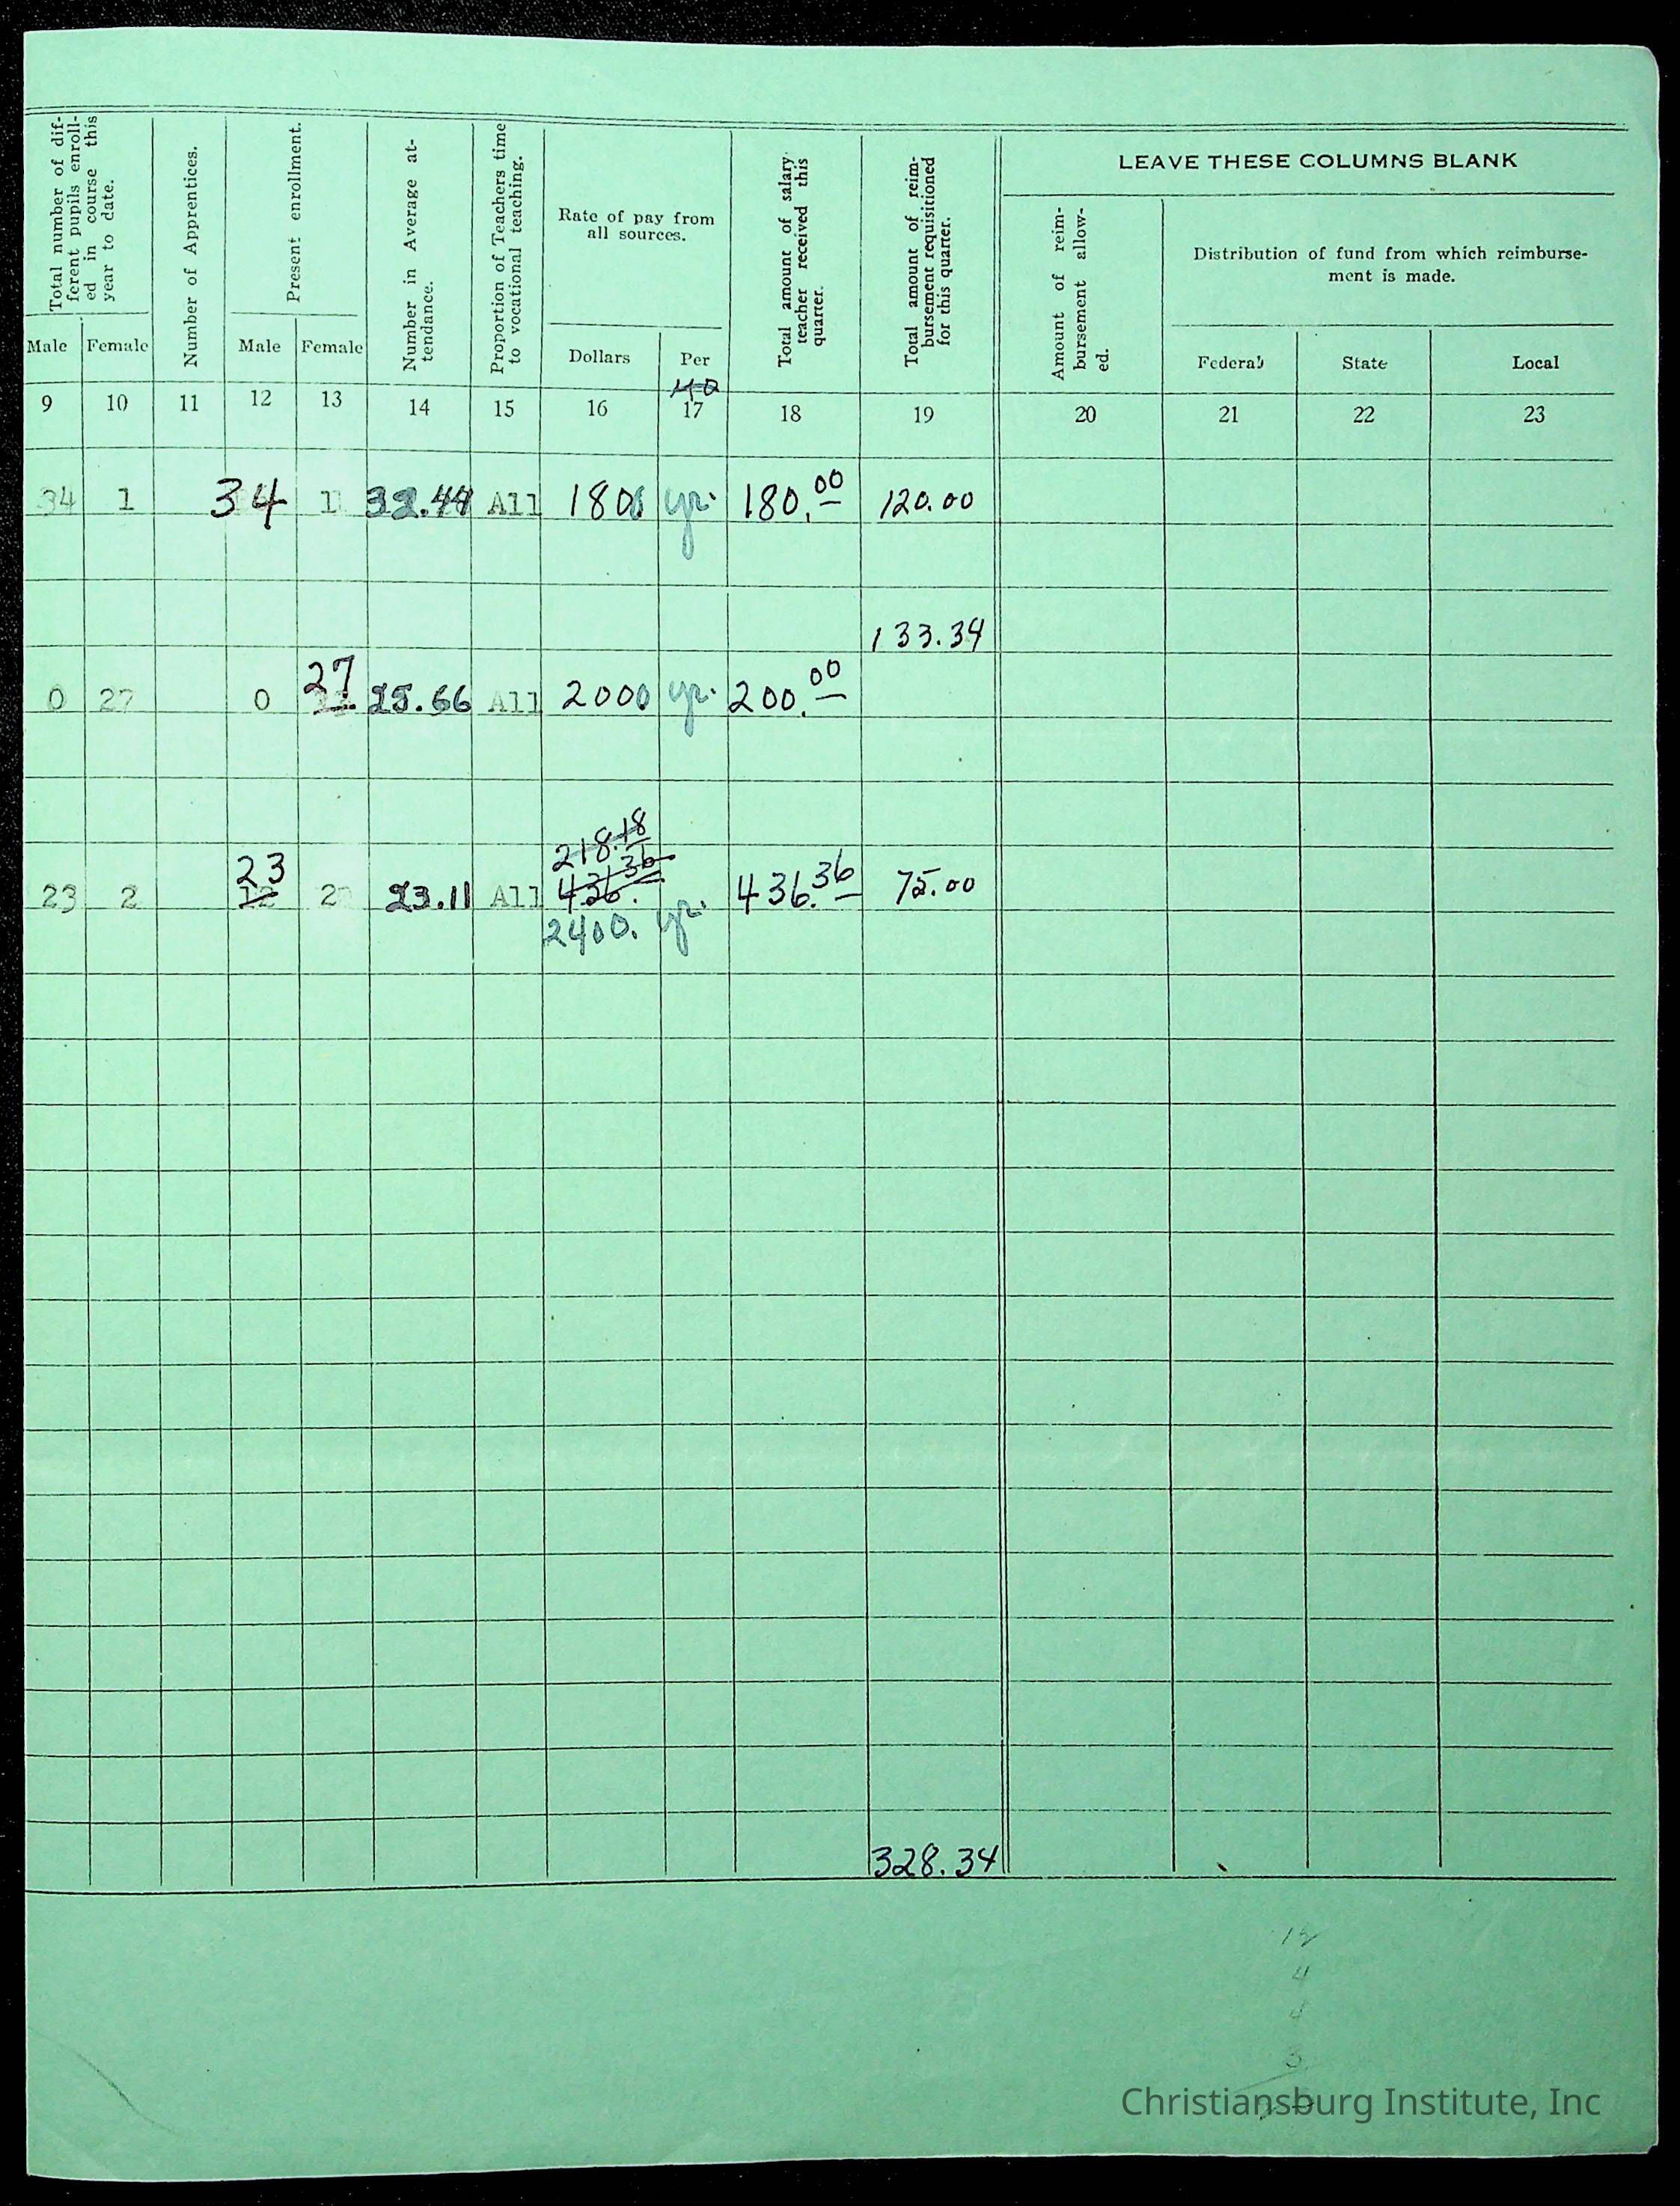 LEAVE THESE COLUMNS BLANK
Total number of dif-
ferent pupils enroll-
ed in course this
year to date.
Number of Apprentices.
Present enrollment.
Number in Average at-
tendance.
Proportion of Teachers time
to vocational teaching.
Rate of pay from
all sources.
Total amount of salary
teacher received this
quarter.
Total amount of reim-
bursement requisitioned
for this quarter.
Amount of reim-
bursement allow-
ed.
Distribution of fund from which reimburse-
ment is made.
Male Female Male Female Dollars Per Federal State Local
40
9 10 11 12 13 14 15 16 17 18 19 20 21 22 23
34 1 34 1 32.44 All 1800 yr. 180.00 120.00
133.34
27
0 27 0 25.66 All 2000 yr. 200.00
218.18
23 436.36
23 2 12 2 23.11 All 2400. yr. 436.36 75.00
328.34
4
4
3
Christiansburg Institute, Inc